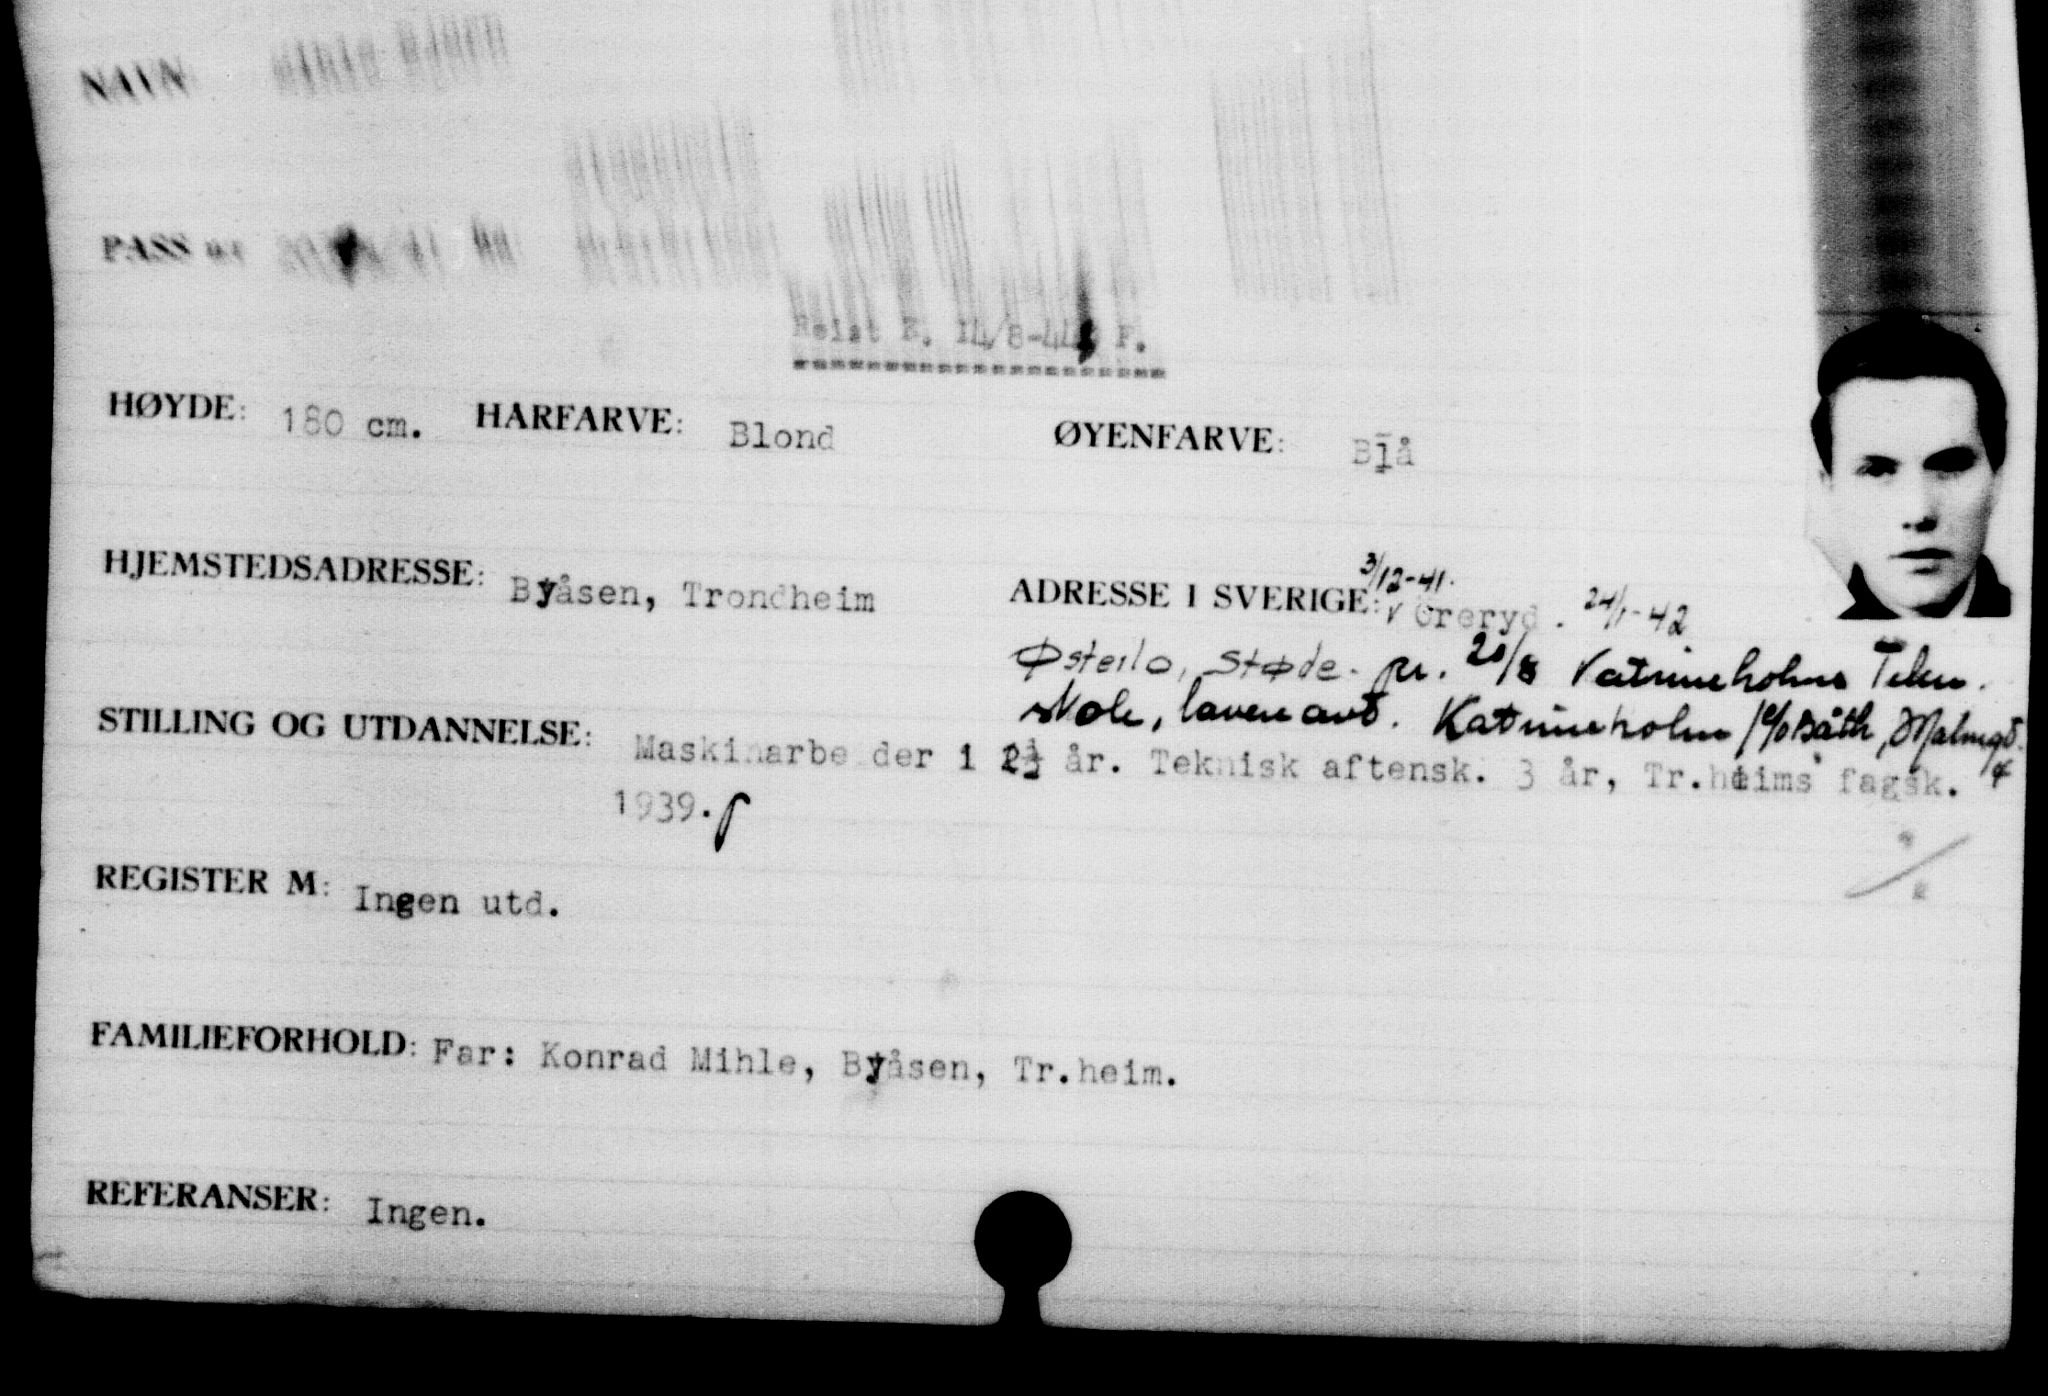 NAVN:
PASS nr
Reist E. 14/8-44 F.
HØYDE: 180 cm. HÅRFARVE: Blond ØYENFARVE: Blå
3/12-41.
HJEMSTEDSADRESSE: Byåsen, Trondheim ADRESSE I SVERIGE: Öreryd. 24/1-42
Østerlo, Støde. pr. 20/8 Katrineholms Tekn.
skole, lavere avd. Katrineholm c/o Bååth, Malmgt.
STILLING OG UTDANNELSE: Maskinarbeider i 2½ år. Teknisk aftensk. 3 år, Tr.heims fagsk.
1939.
REGISTER M: Ingen utd.
FAMILIEFORHOLD: Far: Konrad Mihle, Byåsen, Tr.heim.
REFERANSER: Ingen.